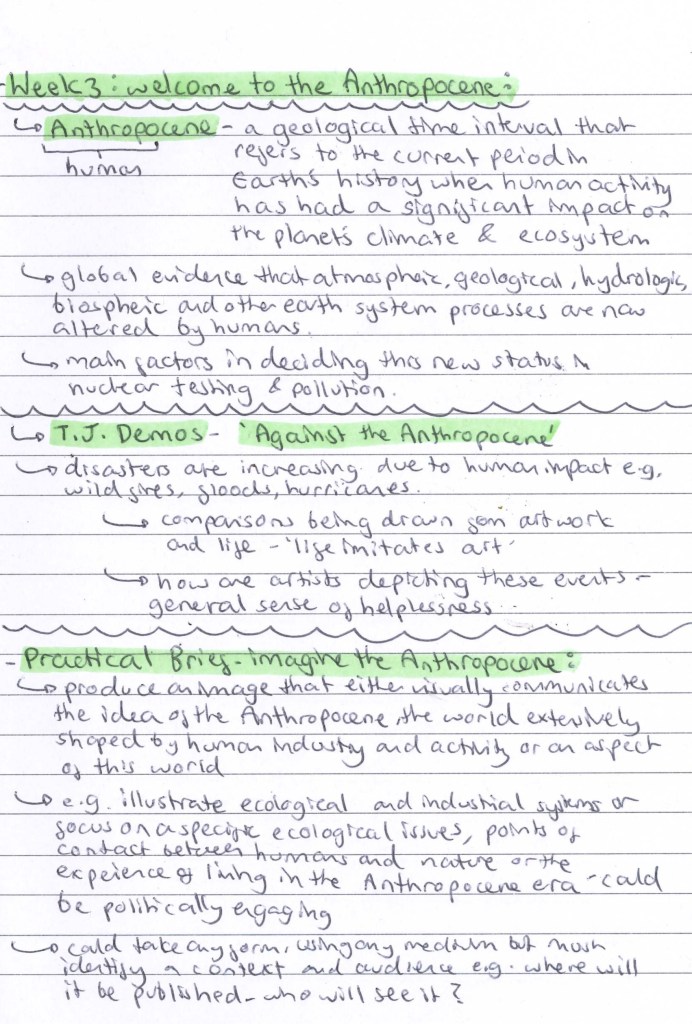 -Week 3: welcome to the Anthropocene:
↳ Anthropocene - a geological time interval that
human
refers to the current period in
Earth's history when human activity
has had a significant impact on
the planet's climate & ecosystem
↳ global evidence that atmospheric, geological, hydrologic,
biospheric and other earth system processes are now
altered by humans.
↳ main factors in deciding this new status is
nuclear testing & pollution.
↳ T.J. Demos - 'Against the Anthropocene'
↳ disasters are increasing due to human impact e.g,
wildfires, floods, hurricanes.
↳ comparisons being drawn from artwork
and life - 'life imitates art'
↳ how are artists depicting these events -
general sense of helplessness
- Practical Brief - imagine the Anthropocene:
↳ produce an image that either visually communicates
the idea of the Anthropocene, the world extensively
shaped by human industry and activity or an aspect
of this world
↳ e.g. illustrate ecological and industrial systems or
focus on a specific ecological issues, points of
contact between humans and nature or the
experience of living in the Anthropocene era - could
be politically engaging
↳ could take any form, using any medium but must
identify a context and audience e.g. where will
it be published - who will see it?